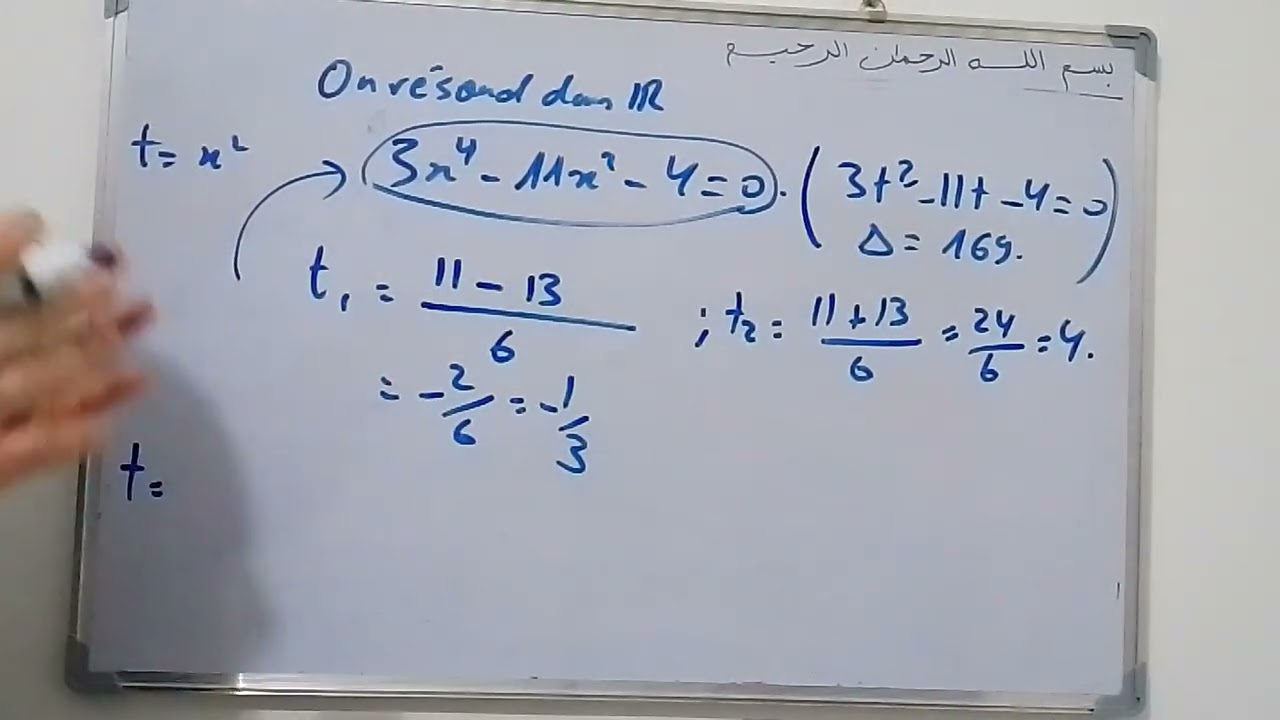 بسم الله الرحمان الرحيم
On résoud dans IR
t = x²
3x⁴ - 11x² - 4 = 0. ( 3t² - 11t - 4 = 0
Δ = 169. )
t₁ = (11 - 13)/6 ; t₂ = (11 + 13)/6 = 24/6 = 4.
= -2/6 = -1/3
t =